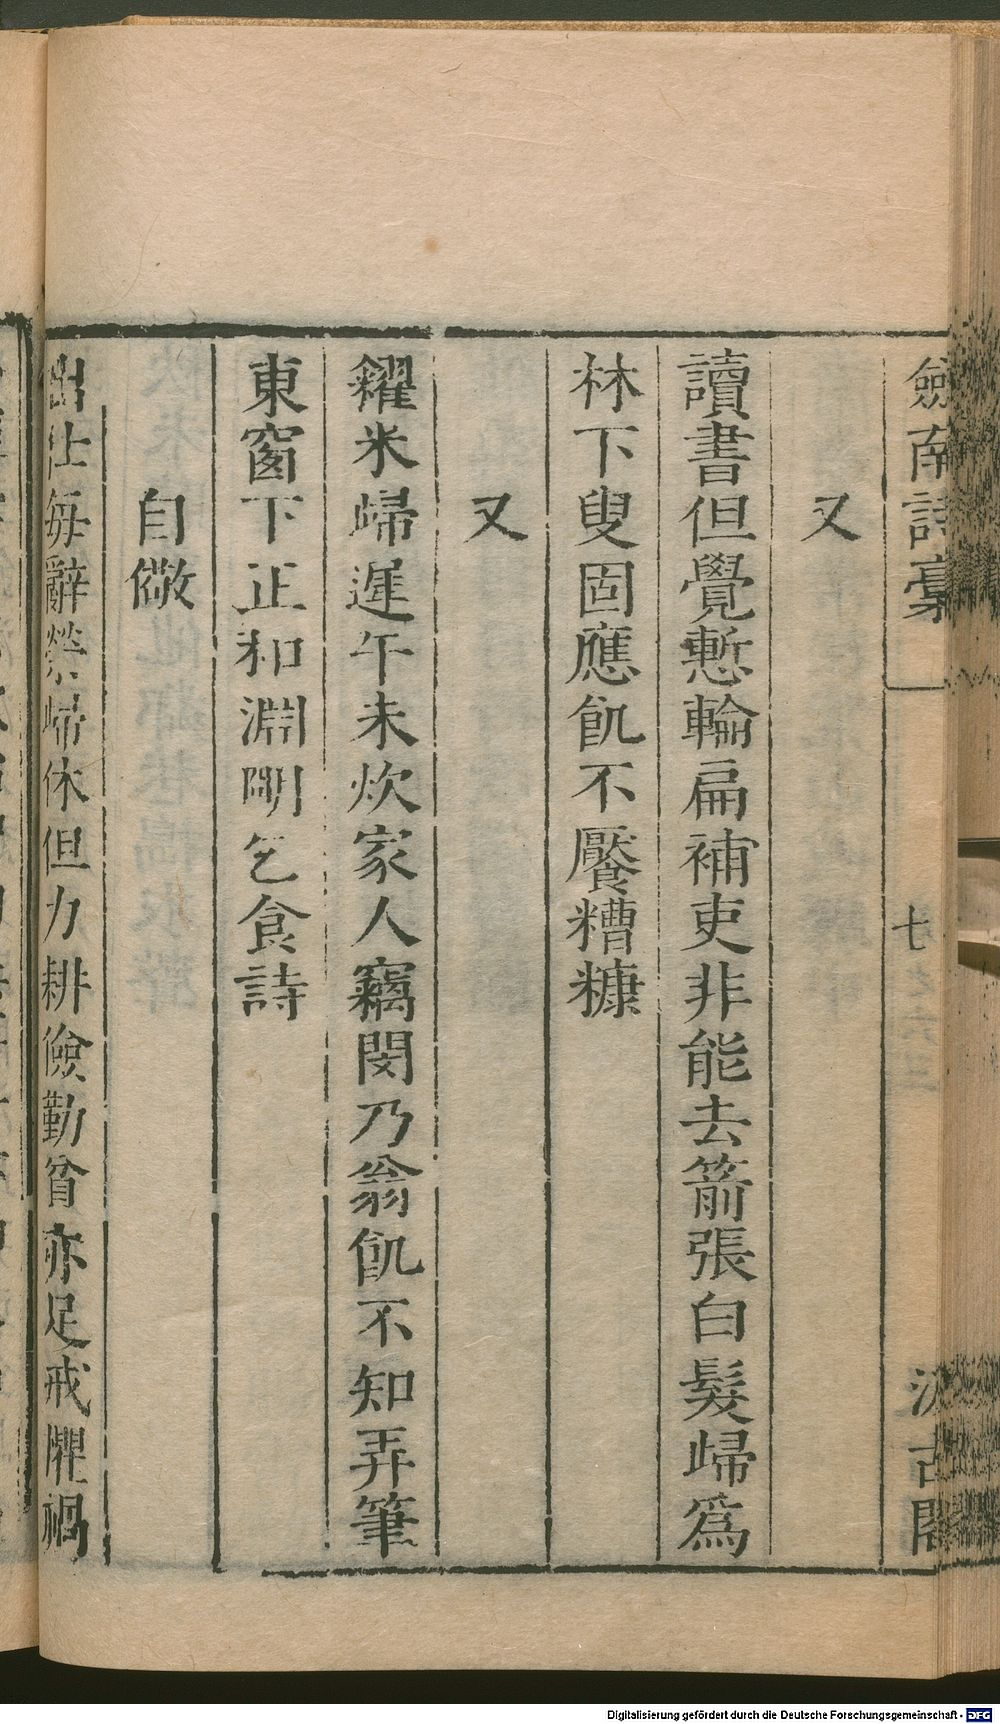 劒南詩稾
汲古閣
又
讀書但覺慙輪扁補吏非能去箭張白髮歸爲
林下叟固應飢不饜糟糠
又
糴米歸遲午未炊家人竊閔乃翁飢不知弄筆
東窗下正和淵明乞食詩
自儆
出仕每辭榮歸休但力耕儉勤貧亦足戒懼禍
Digitalisierung gefördert durch die Deutsche Forschungsgemeinschaft - DFG